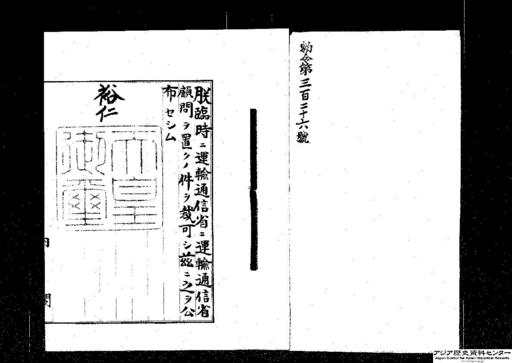 勅令第三百二十六號
朕臨時ニ運輸通信省ニ運輸通信省
顧問ヲ置クノ件ヲ裁可シ茲ニ之ヲ公
布セシム
裕仁
天皇
御璽
内閣
アジア歴史資料センター
Japan Center for Asian Historical Records